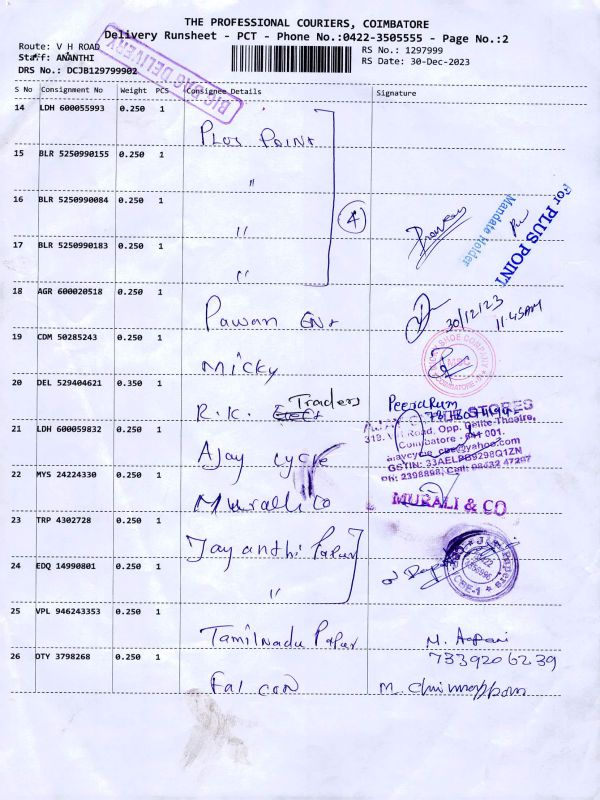 THE PROFESSIONAL COURIERS, COIMBATORE
Delivery Runsheet - PCT - Phone No.:0422-3505555 - Page No.:2
Route: V H ROAD
RS No.: 1297999
Staff: ANANTHI
RS Date: 30-Dec-2023
DRS No.: DCJB129799902
BIG BAG DELIVERY
S No Consignment No Weight PCS Consignee Details Signature
14 LDH 600055993 0.250 1 Plus Point
15 BLR 5250990155 0.250 1 "
16 BLR 5250990084 0.250 1 "
17 BLR 5250990183 0.250 1 "
4
For PLUS POINT
Mandate Holder
18 AGR 600020518 0.250 1 Pawan Ent
30/12/23
11.45AM
19 CDM 50285243 0.250 1 Micky
SHOE COMPANY
COIMBATORE
20 DEL 529404621 0.350 1 R.K. Traders
21 LDH 600059832 0.250 1 Ajay cycle
STORES
Road, Opp.
Coimbatore - 641 001.
Ph: 2398898, Cell: 98432 47287
22 MYS 24224330 0.250 1 Muralli Co
MURALI & CO
23 TRP 4302728 0.250 1 Jayanthi Papur
24 EDQ 14990801 0.250 1 "
Papers
CBE-1
25 VPL 946243353 0.250 1 Tamilnadu Papur
7339206239
26 OTY 3798268 0.250 1 Falcon